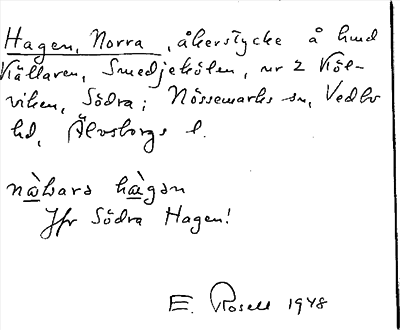 Hagen, Norra, åkerstycke å hmd
Källaren, Smedjekölen, nr 2 Köl-
viken, Södra; Nössemarks sn, Vedbo
hd, Älvsborgs l.
nàwara hàgan
Jfr Södra Hagen!
E. Rosell 1948